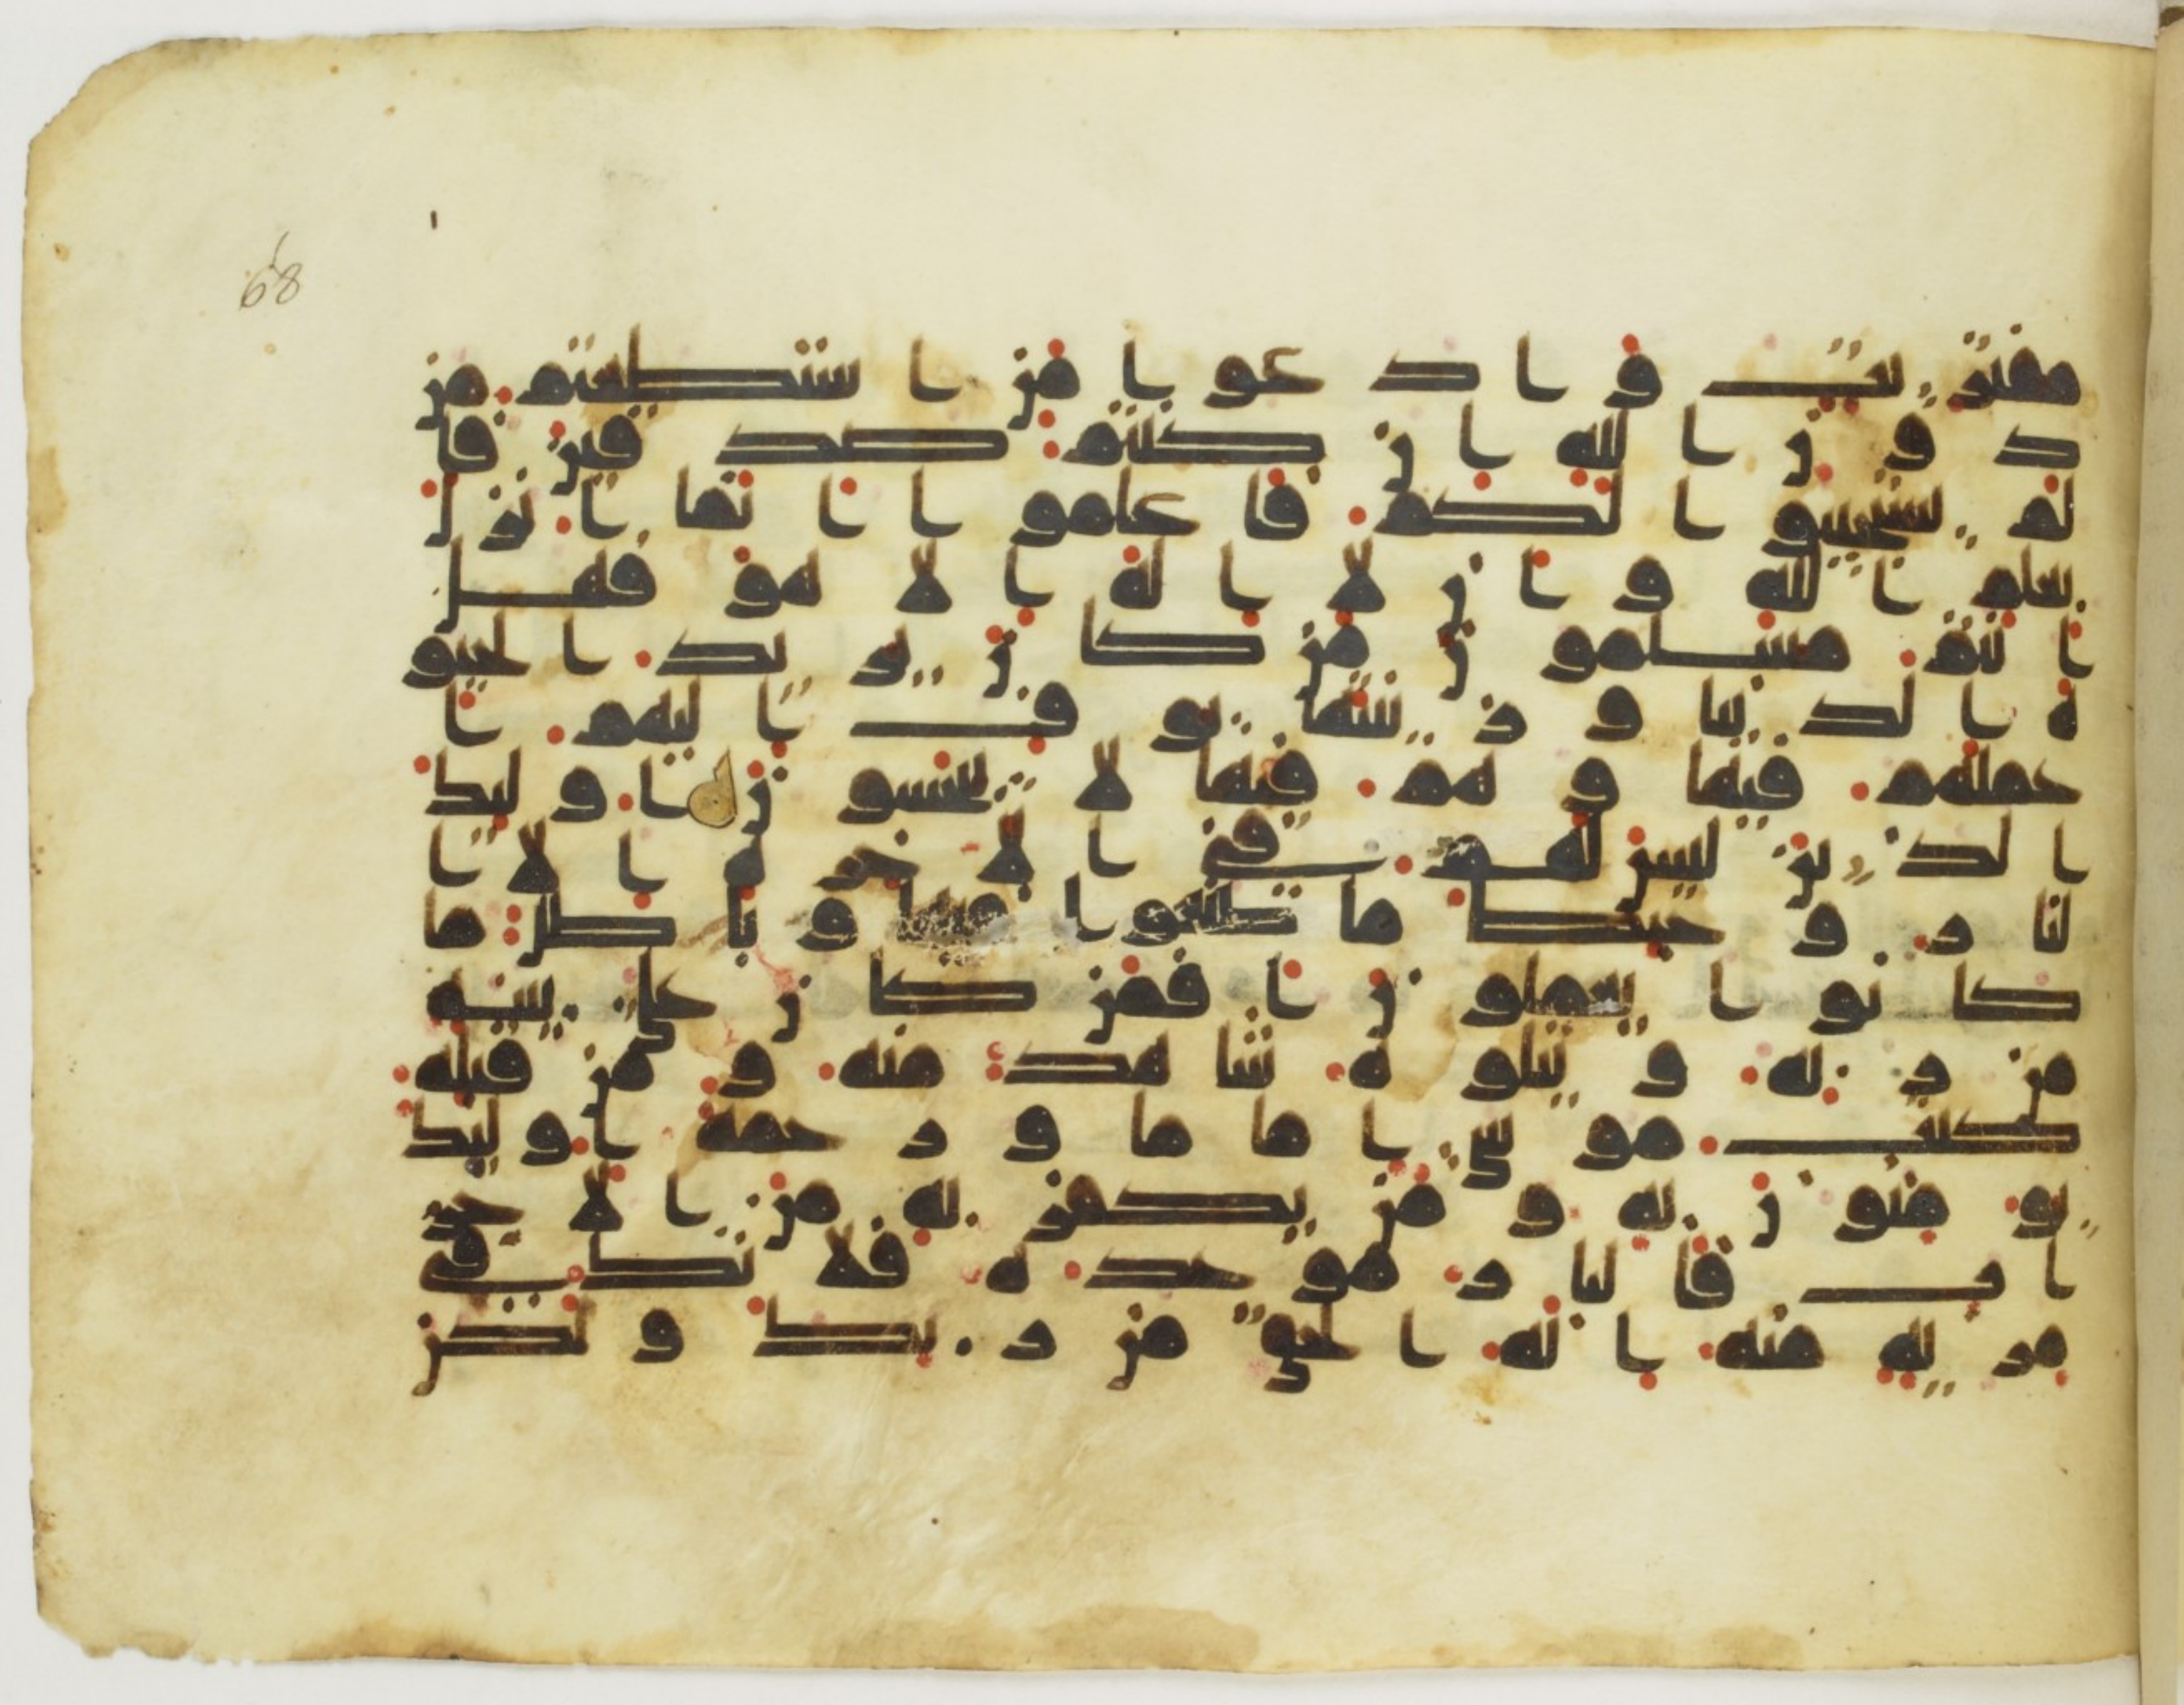 68
مفتريت وادعوا من استطعتم من
دون الله ان كنتم صدقين فا
لم يستجيبوا لكم فاعلموا انما انزل
بعلم الله وان لا اله الا هو فهل
انتم مسلمون من كان يريد الحيو
ة الدنيا وزينتها نوف اليهم ا
عملهم فيها وهم فيها لا يبخسون اوليك
الذين ليس لهم في الاخرة الا ا
لنار وحبط ما صنعوا فيها وباطل ما
كانوا يعملون افمن كان على بينه
من ربه ويتلوه شاهد منه ومن قبله
كتب موسى اماما ورحمه اوليك
يومنون به ومن يكفر به من الاحز
اب فالنار موعده فلا تك في
مريه منه انه الحق من ربك ولكن